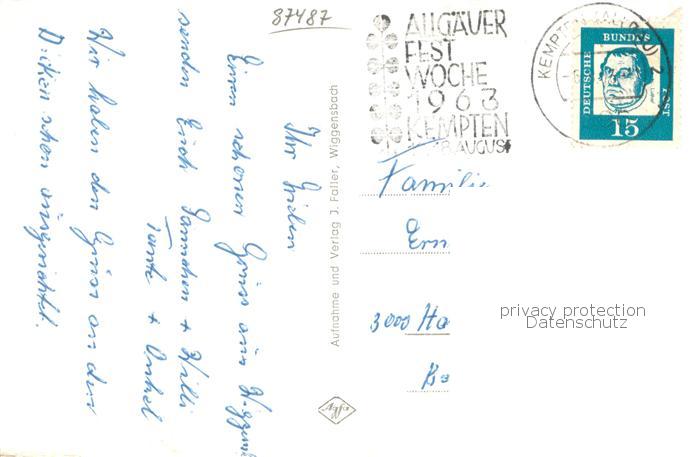 87487
ALLGÄUER
FEST
WOCHE
1963
KEMPTEN
AUGUST
KEMPTEN
DEUTSCHE BUNDESPOST
15
Ihr Lieben
Einen schönen Gruss aus
senden Euch Hannchen + Willi
Tante + Onkel
Wir haben den Gruss an den
Dicken schon ausgerichtet.
Aufnahme und Verlag J. Faller, Wiggensbach
Familie
Ern
3000 Ha
privacy protection
Datenschutz
Agfa